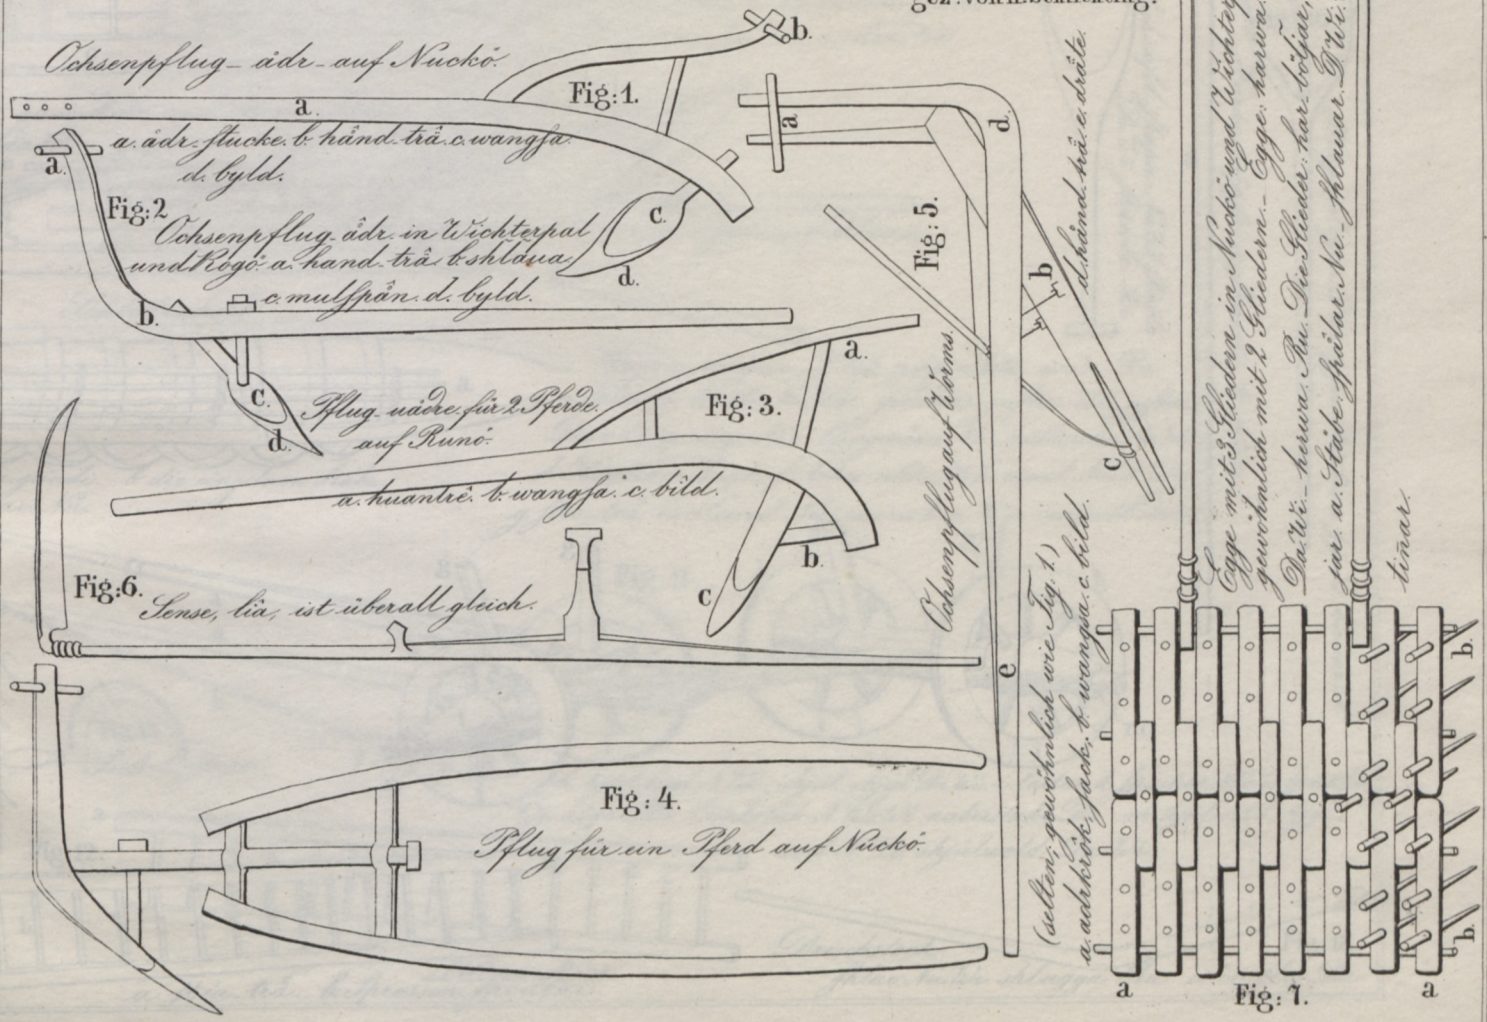 gez. von H. Schlichting.
Ochsenpflug - ådr - auf Nuckö.
b.
Fig: 1.
a.
a. ådr. stucke. b. hånd-trä. c. wangsa.
d. byld.
c.
d.
a.
Fig: 2
Ochsenpflug - ådr. in Wichterpal
und Rogö. a. hand-trä b. shlâua
c. mulspån. d. byld.
b.
c.
d.
Pflug - uådre. für 2 Pferde.
auf Runö.
Fig: 3.
a.
a. huantrè. b. wangsa. c. bild.
b.
c
Fig: 6.
Sense, lia, ist überall gleich.
Fig: 4.
Pflug für ein Pferd auf Nuckö.
a
d.
Fig: 5.
b
c
e
d. hånd-trä. e. dräte.
Ochsenpflug auf Worms.
(selten, gewöhnlich wie Fig. 1)
a. adrkrök, sack, b. wangsa. c. bild.
Egge mit 3 Gliedern in Nuckö und Wichterp
gewöhnlich mit 2 Gliedern. - Egge: harwa.
Da. Wi. - herwa. Ru. Die Glieder: har. böljar,
jar. a. Stäbe. spålar. Nu. - shlauar. D. Wi.
tiñar.
b.
b.
a
a
Fig: 7.